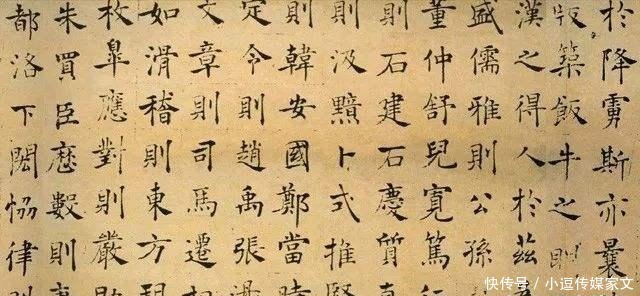 於降虜斯亦曩
版築飯牛之
漢之得人於茲
盛儒雅則公孫
董仲舒兒寬篤行
則石建石慶質
則汲黯卜式推賢
則韓安國鄭當時
定令則趙禹張
文章則司馬遷相
如滑稽則東方朔
枚皋應對則嚴助
朱買臣歷數則
都洛下閎恊律則
快传号／小逗传媒家文